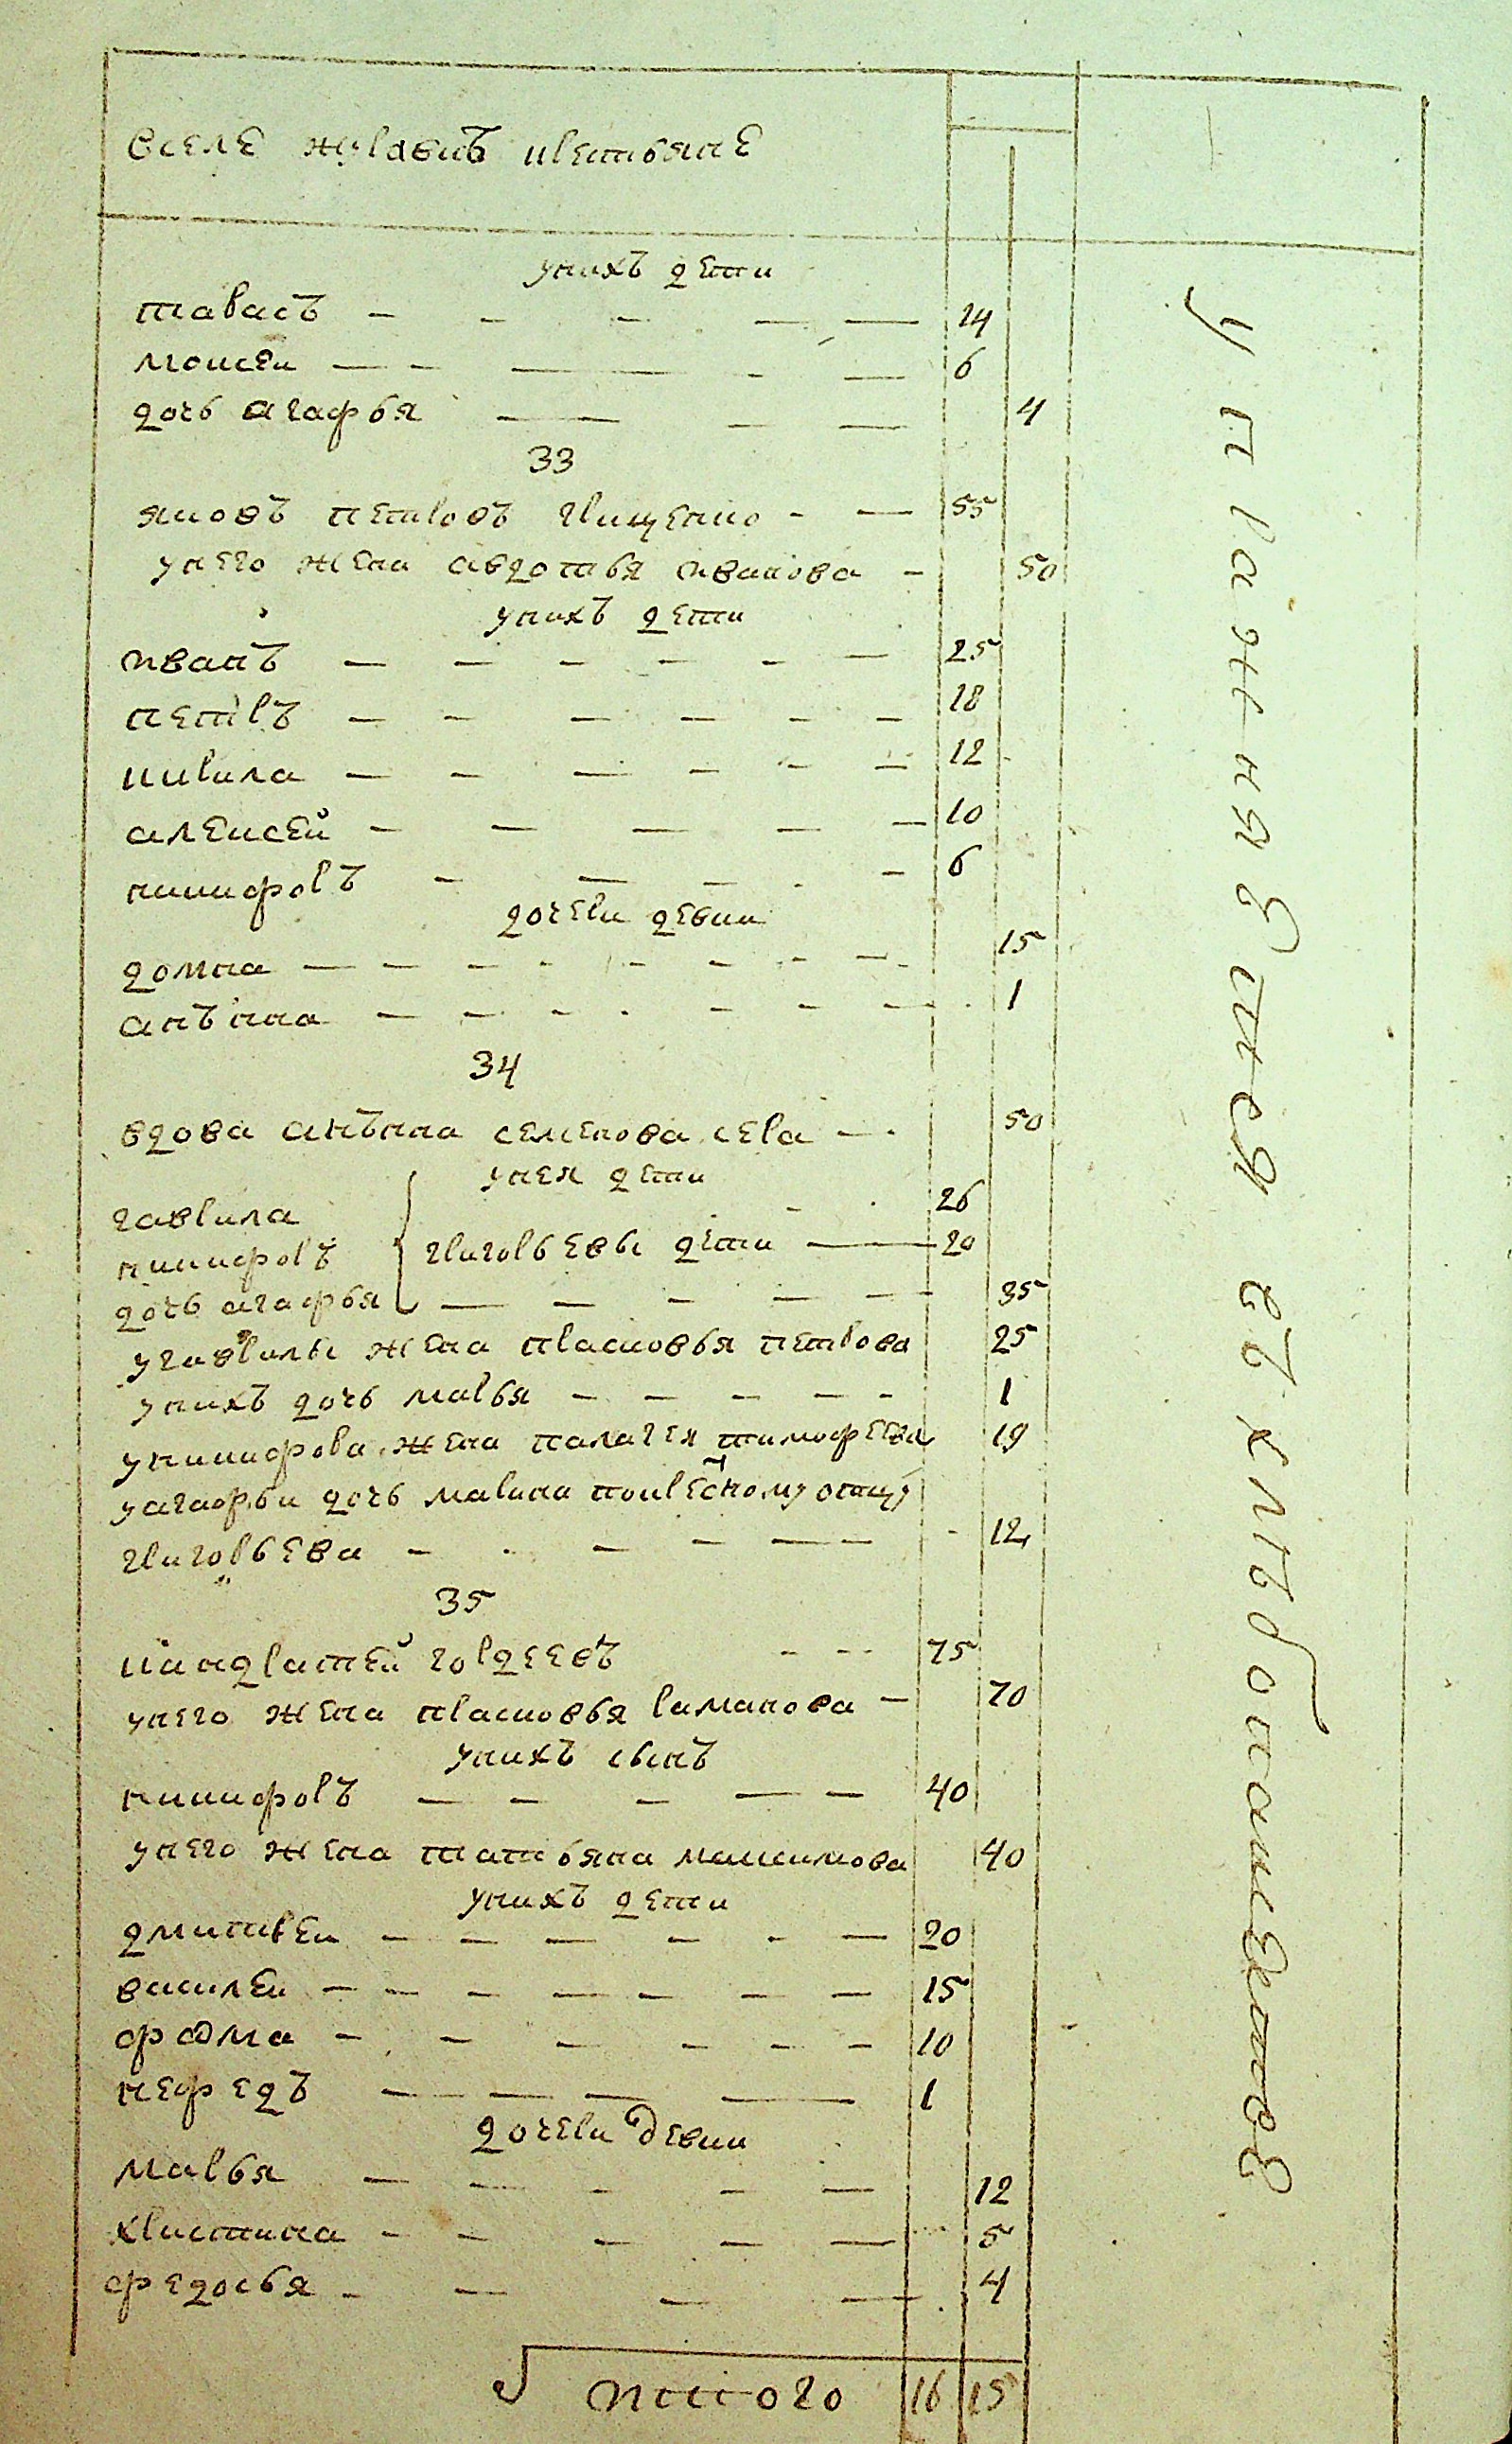 в селе журавкѣ крестьяне
у нихъ дети
тарасъ 14
моисеи 6
дочь агафья 4
33
яковъ петровъ грищенко 55
у него жена авдотья иванова 50
у нихъ дети
иванъ 25
петръ 18
кирила 12
алексей 10
никифоръ 6
дочери девки
домна 15
анъна 1
34
вдова анъна семенова сера 50
у нея дети
гаврила 26
никифоръ григорьевы дети 20
дочь агафья 35
у гаврилы жена прасковья петрова 25
у нихъ дочь марья 1
у никифора жена палагея тимофеева 19
у агафьи дочь марина по крестному отцу
григорьева 12
35
кандратей гордеевъ 75
у него жена прасковья романова 70
у нихъ сынъ
никифоръ 40
у него жена татьяна максимова 40
у нихъ дети
дмитреи 20
василеи 15
фома 10
нефедъ 1
дочери девки
марья 12
христина 5
федосья 4
итого 16 15
упражняется въ хлебопашестве